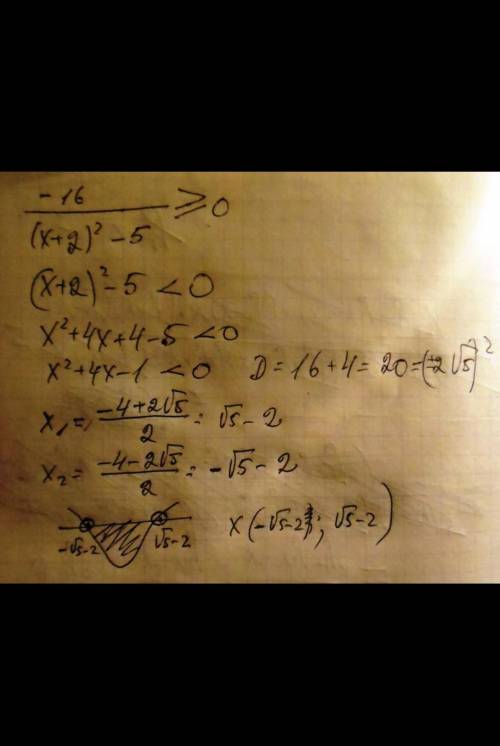 -16
—————— ≥ 0
(x+2)² - 5
(x+2)² - 5 < 0
x² + 4x + 4 - 5 < 0
x² + 4x - 1 < 0   D = 16 + 4 = 20 = (±2√5)²
x₁ = (-4+2√5)/2 = √5 - 2
x₂ = (-4-2√5)/2 = -√5 - 2
-√5-2   √5-2   x (-√5-2; √5-2)